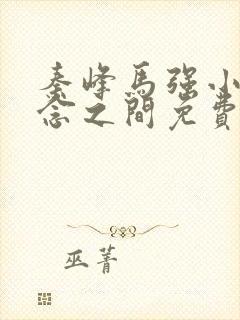 秦峰馬强小
念之間免費
巫菁